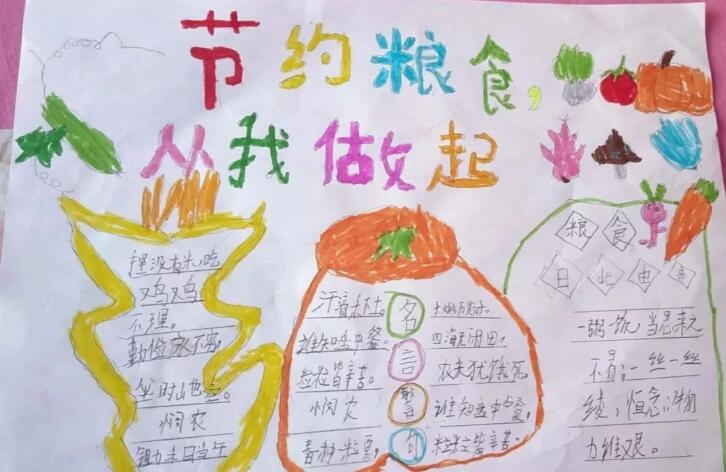 节约粮食,
从我做起
没有米吃
不理。
勤俭永不穷
山也空。
悯农
锄禾日当午
谁知盘中餐。
粒粒皆辛苦。
悯农
春种一粒粟,
名
言
警
句
四海无闲田,
农夫犹饿死。
谁知盘中餐,
粒粒皆辛苦.
粮食
日的由来
一粥饭,当思来之
不易;一丝一丝
缕,恒念;物
力维艰。